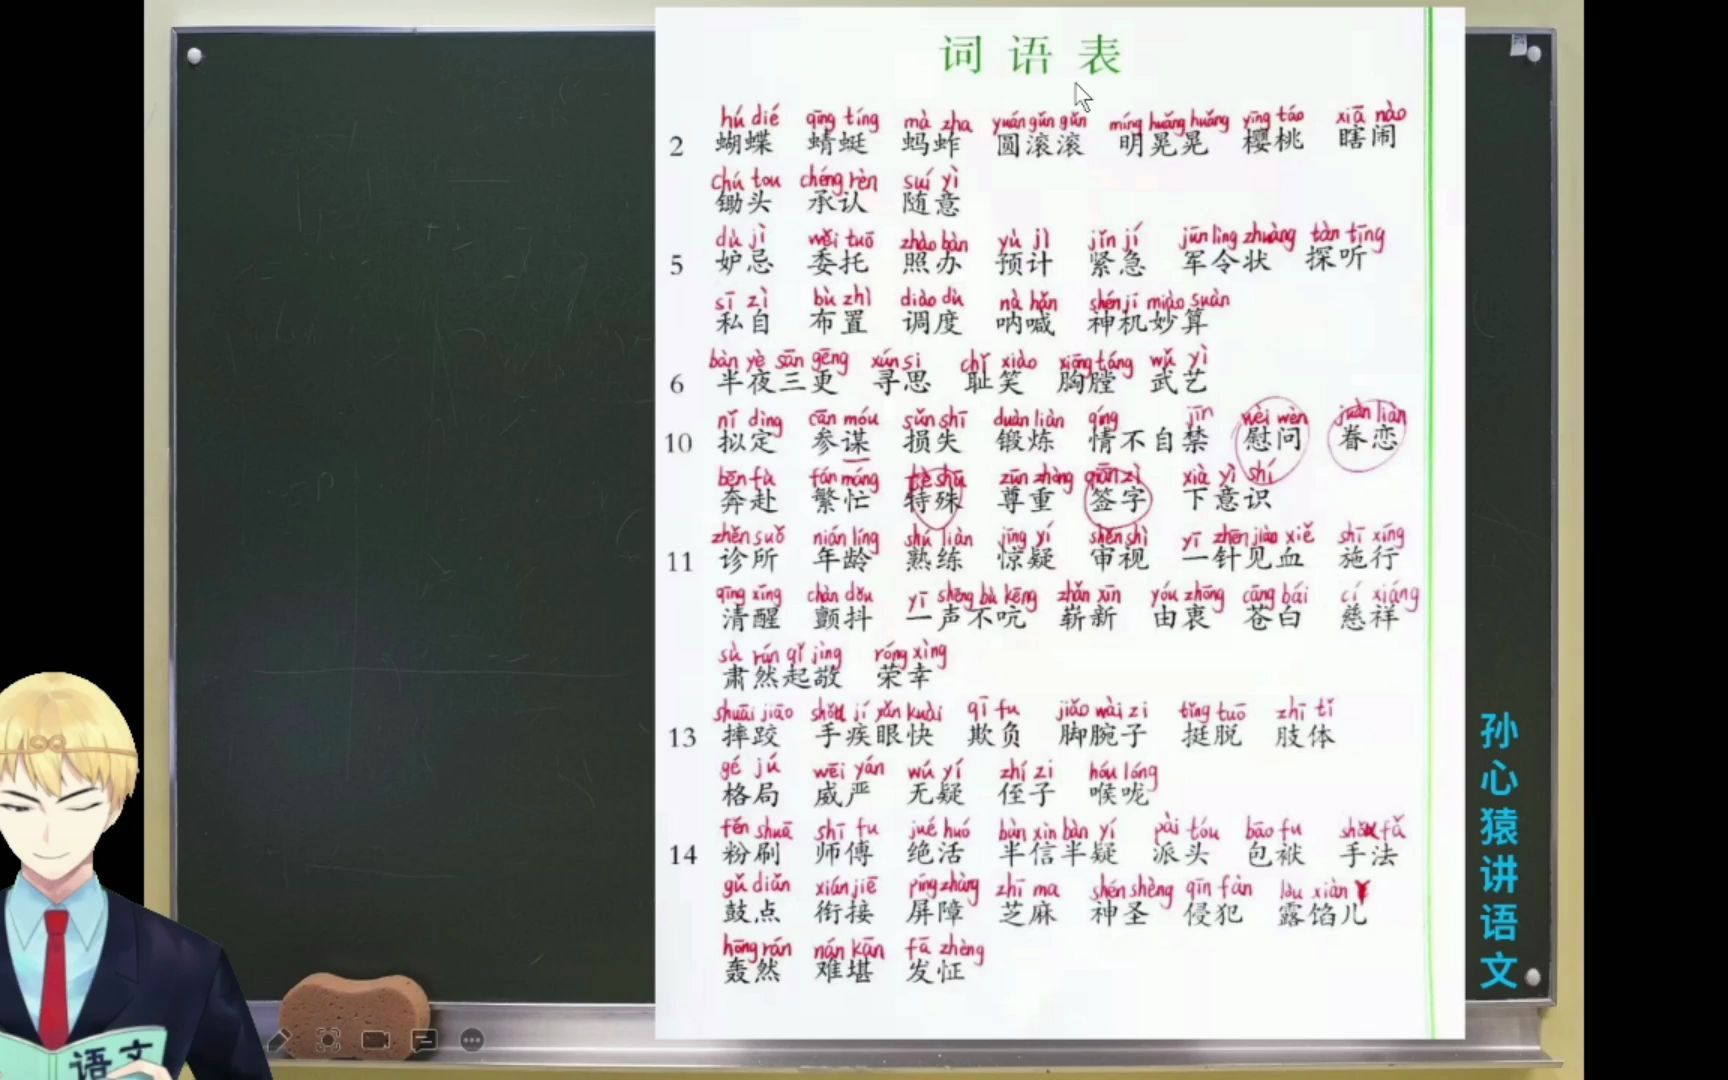 词语表
hú dié qīng tíng mà zha yuán gǔn gǔn míng huǎng huǎng yīng táo xiā nào
2 蝴蝶 蜻蜓 蚂蚱 圆滚滚 明晃晃 樱桃 瞎闹
chú tou chéng rèn suí yì
锄头 承认 随意
dù jì wěi tuō zhào bàn yù jì jǐn jí jūn lìng zhuàng tàn tīng
5 妒忌 委托 照办 预计 紧急 军令状 探听
sī zì bù zhì diào dù nà hǎn shén jī miào suàn
私自 布置 调度 呐喊 神机妙算
bàn yè sān gēng xún si chǐ xiào xiōng táng wǔ yì
6 半夜三更 寻思 耻笑 胸膛 武艺
nǐ dìng cān móu sǔn shī duàn liàn qíng jīn wèi wèn juàn liàn
10 拟定 参谋 损失 锻炼 情不自禁 慰问 眷恋
bēn fù fán máng tè shū zūn zhòng qiān zì xià yì shí
奔赴 繁忙 特殊 尊重 签字 下意识
zhěn suǒ nián líng shú liàn jīng yí shěn shì yī zhēn jiàn xiě shī xíng
11 诊所 年龄 熟练 惊疑 审视 一针见血 施行
qīng xǐng chàn dǒu yī shēng bù kēng zhǎn xīn yóu zhōng cāng bái cí xiáng
清醒 颤抖 一声不吭 崭新 由衷 苍白 慈祥
sù rán qǐ jìng róng xìng
肃然起敬 荣幸
shuāi jiāo shǒu jí yǎn kuài qī fu jiǎo wàn zi tǐng tuō zhī tǐ
13 摔跤 手疾眼快 欺负 脚腕子 挺脱 肢体
gé jú wēi yán wú yí zhí zi hóu lóng
格局 威严 无疑 侄子 喉咙
fěn shuā shī fu jué huó bàn xìn bàn yí pài tóu bāo fu shǒu fǎ
14 粉刷 师傅 绝活 半信半疑 派头 包袱 手法
gǔ diǎn xián jiē píng zhàng zhī ma shén shèng qīn fàn lòu xiàn
鼓点 衔接 屏障 芝麻 神圣 侵犯 露馅儿
hōng rán nán kān fā zhèng
轰然 难堪 发怔
孙心猿讲语文
语文